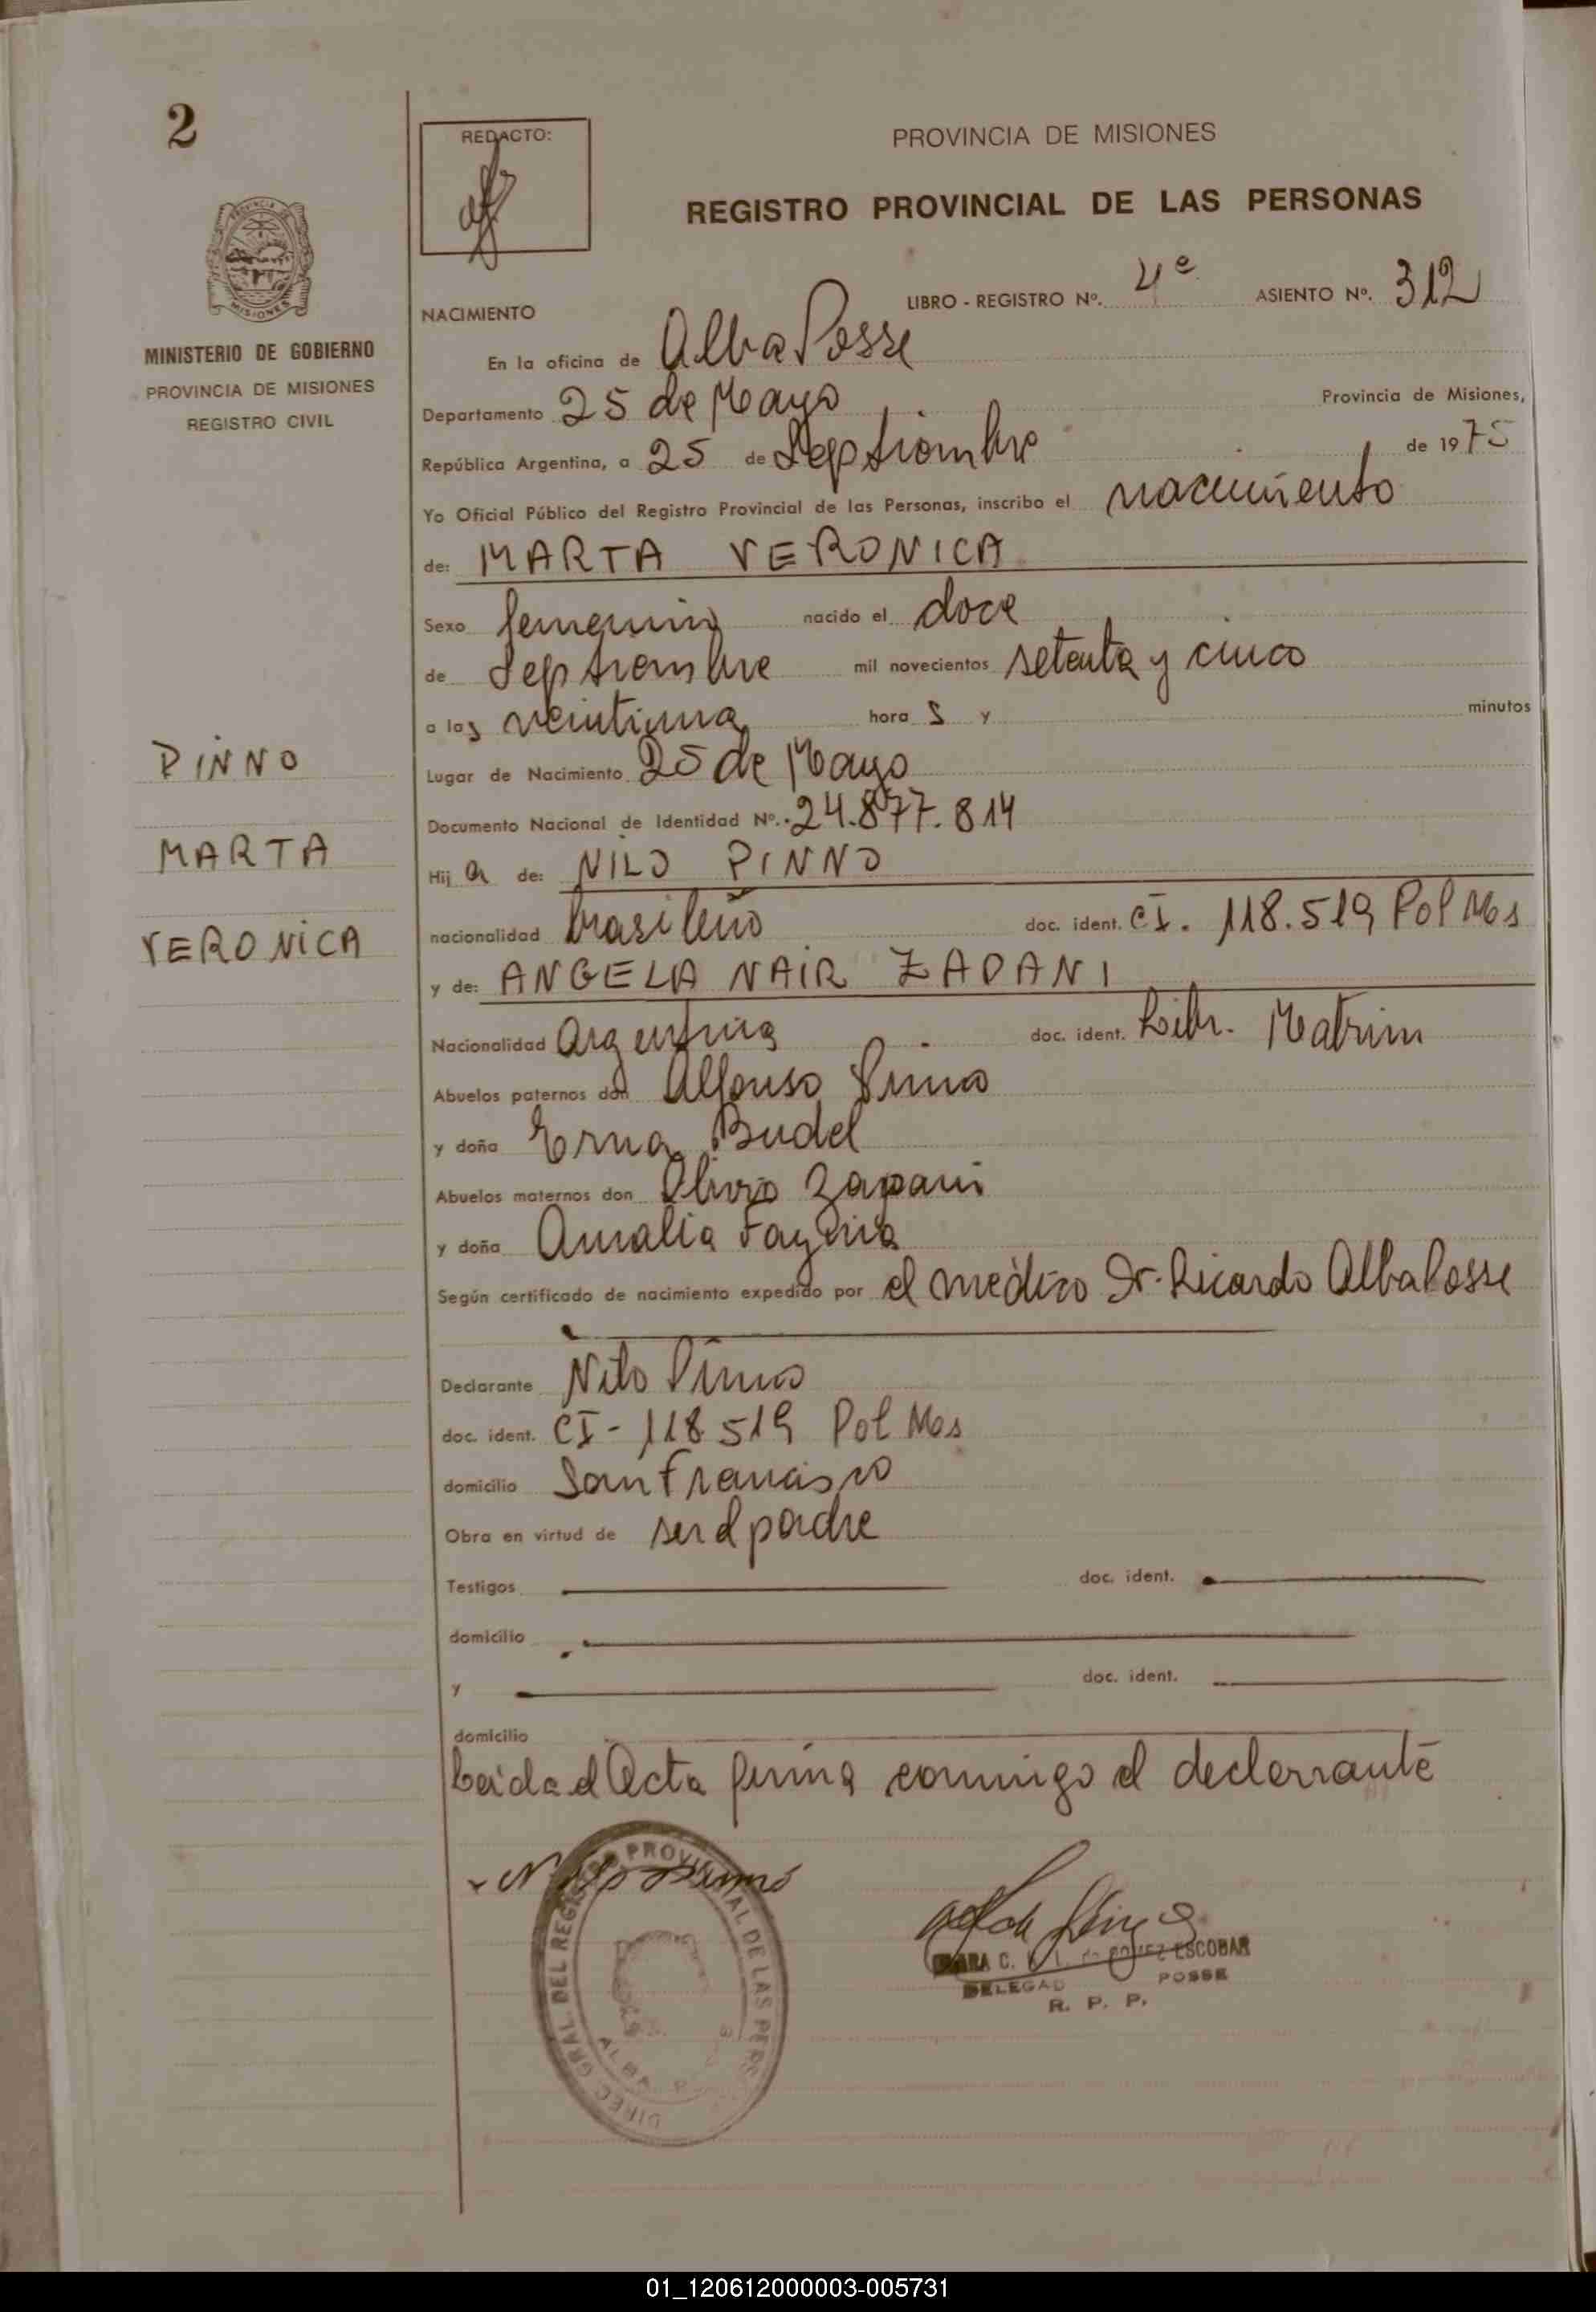 2
REDACTO:
PROVINCIA DE MISIONES
REGISTRO PROVINCIAL DE LAS PERSONAS
PROVINCIA DE
MISIONES
MINISTERIO DE GOBIERNO
PROVINCIA DE MISIONES
REGISTRO CIVIL
LIBRO - REGISTRO Nº. 4º ASIENTO Nº. 312
NACIMIENTO
En la oficina de Alba Posse
Departamento 25 de Mayo Provincia de Misiones,
República Argentina, a 25 de Septiembre de 1975
Yo Oficial Público del Registro Provincial de las Personas, inscribo el nacimiento
de: MARTA VERONICA
Sexo femenino nacido el doce
de Septiembre mil novecientos setenta y cinco
a las veintiuna hora s y minutos
Lugar de Nacimiento 25 de Mayo
Documento Nacional de Identidad Nº. 24.877.814
Hij a de: NILO PINNO
nacionalidad brasileño doc. ident. CI. 118.519 Pol Mos
y de: ANGELA NAIR ZAPANI
Nacionalidad Argentina doc. ident. Libr. Matrim
Abuelos paternos don Alfonso Pinno
y doña Erna Budel
Abuelos maternos don Olivio Zapani
y doña Amalia
Según certificado de nacimiento expedido por el médico Dr. Ricardo Alba Posse
Declarante Nilo Pinno
doc. ident. CI - 118519 Pol Mos
domicilio San Francisco
Obra en virtud de ser el padre
Testigos doc. ident.
domicilio
y doc. ident.
domicilio
Leida el Acta firma conmigo el declarante
PINNO
MARTA
VERONICA
Nilo Pinno
DIREC. GRAL. DEL REGISTRO PROVINCIAL DE LAS PERS
ALBA P
C. GOMEZ ESCOBAR
DELEGAD POSSE
R. P. P.
01_120612000003-005731